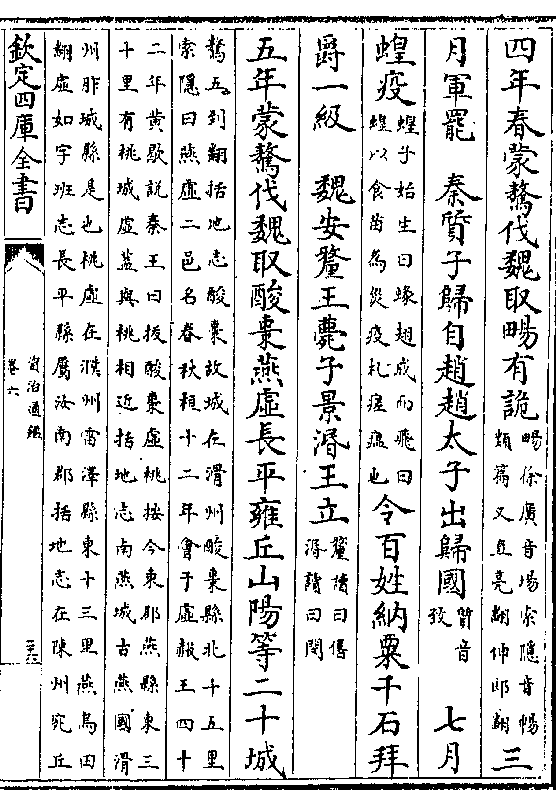 四年春蒙驁伐魏取畼有詭畼徐廣音場索隱音暢類篇又直亮翻仲郎翻三
月軍罷 秦質子歸自趙趙太子出歸國質音致 七月
蝗疫蝗子始生曰蝝翅成而飛曰蝗以食苗為災疫札瘥瘟也令百姓納粟千石拜
爵一級 魏安釐王薨子景湣王立釐讀曰僖湣讀曰閔
五年蒙驁伐魏取酸棗燕虛長平雍丘山陽等二十城
驁五到翻括地志酸棗故城在滑州酸棗縣北十五里
索隱曰燕虛二邑名春秋桓十二年會于虛赧王四十
二年黄歇說秦王曰拔酸棗虛桃按今東郡燕縣東三
十里有桃城虛蓋與桃相近括地志南燕城古燕國滑
州胙城縣是也桃虛在濮州雷澤縣東十三里燕烏田
翻虛如字班志長平縣屬汝南郡括地志在陳州宛丘
欽定四庫全書
資治通鑑
卷六